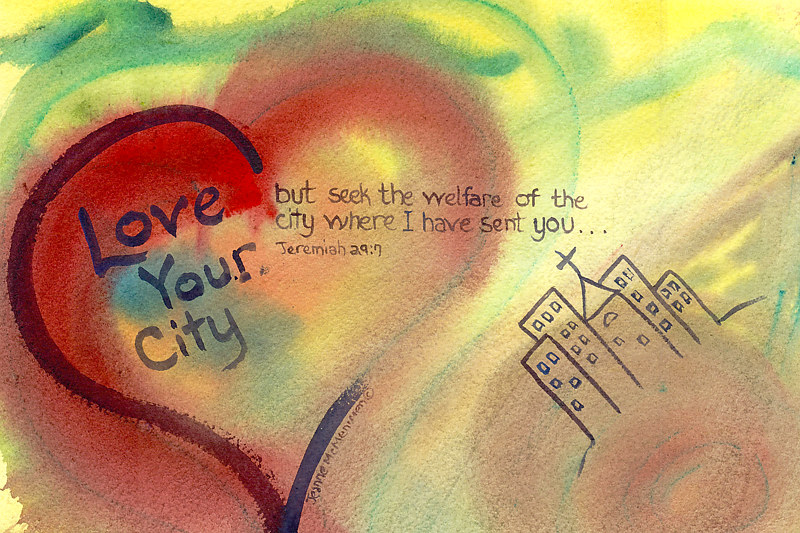 Love
Your
City
but seek the welfare of the
city where I have sent you...
Jeremiah 29:7
Jeanne ©